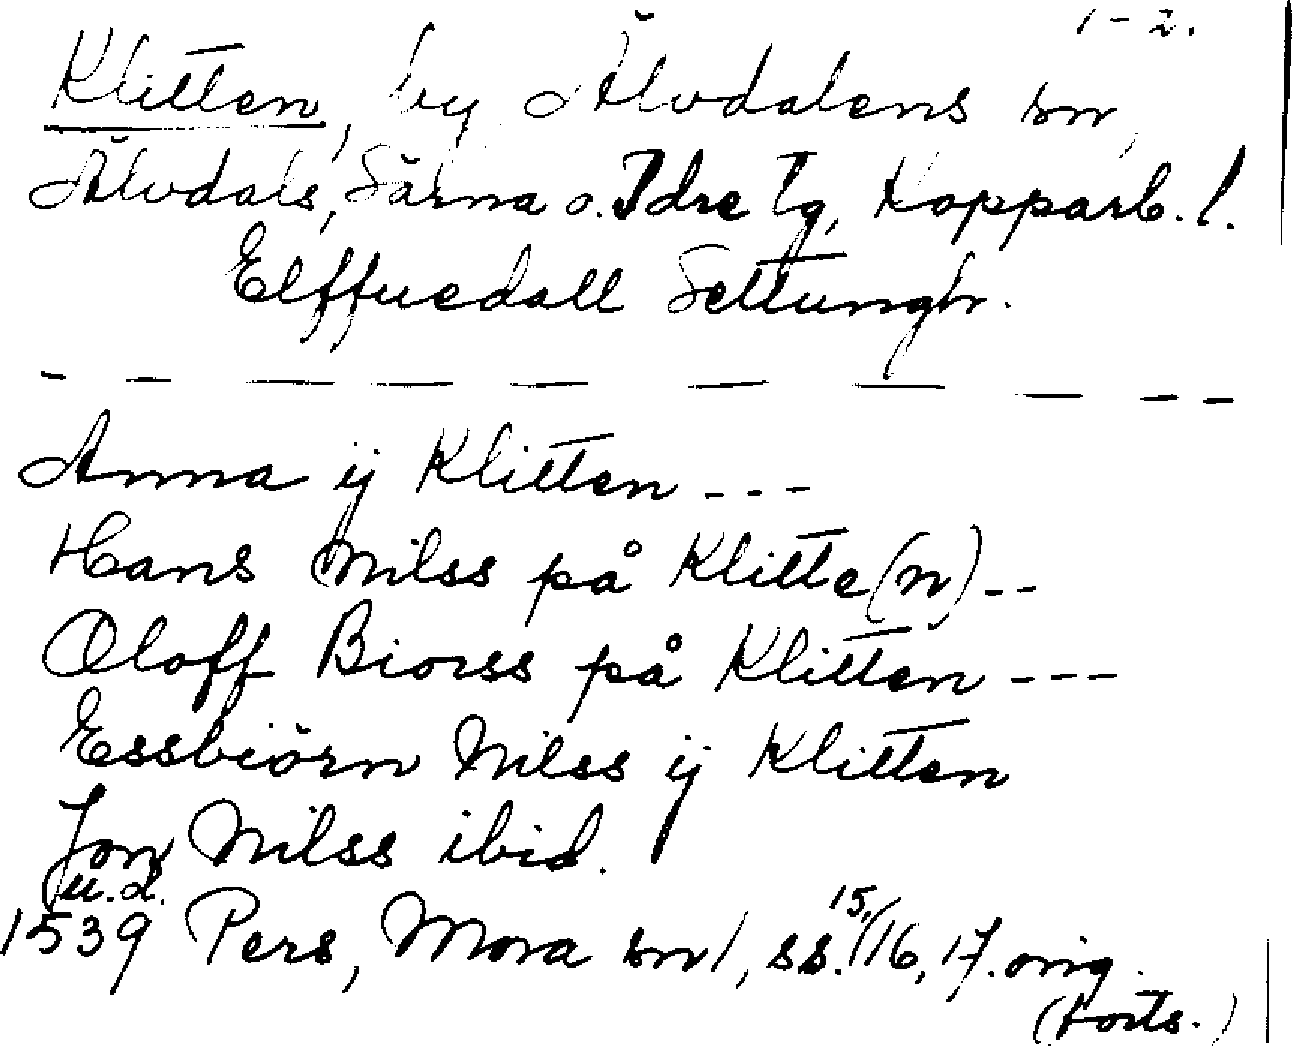 1-2.
Klitten, by Älvdalens sn,
Älvdals, Särna o. Idre tg, Kopparb. l.
Elffuedall Settungh.
Anna ij Klitten ---
Hans Nilss på Klitte(n) --
Oloff Biorss på Klitten ---
Essbiörn Nilss ij Klitten
Jon Nilss ibid.
u.d.
1539 Pers, Mora sn 1, ss. 15, 16, 17. orig.
(forts.)